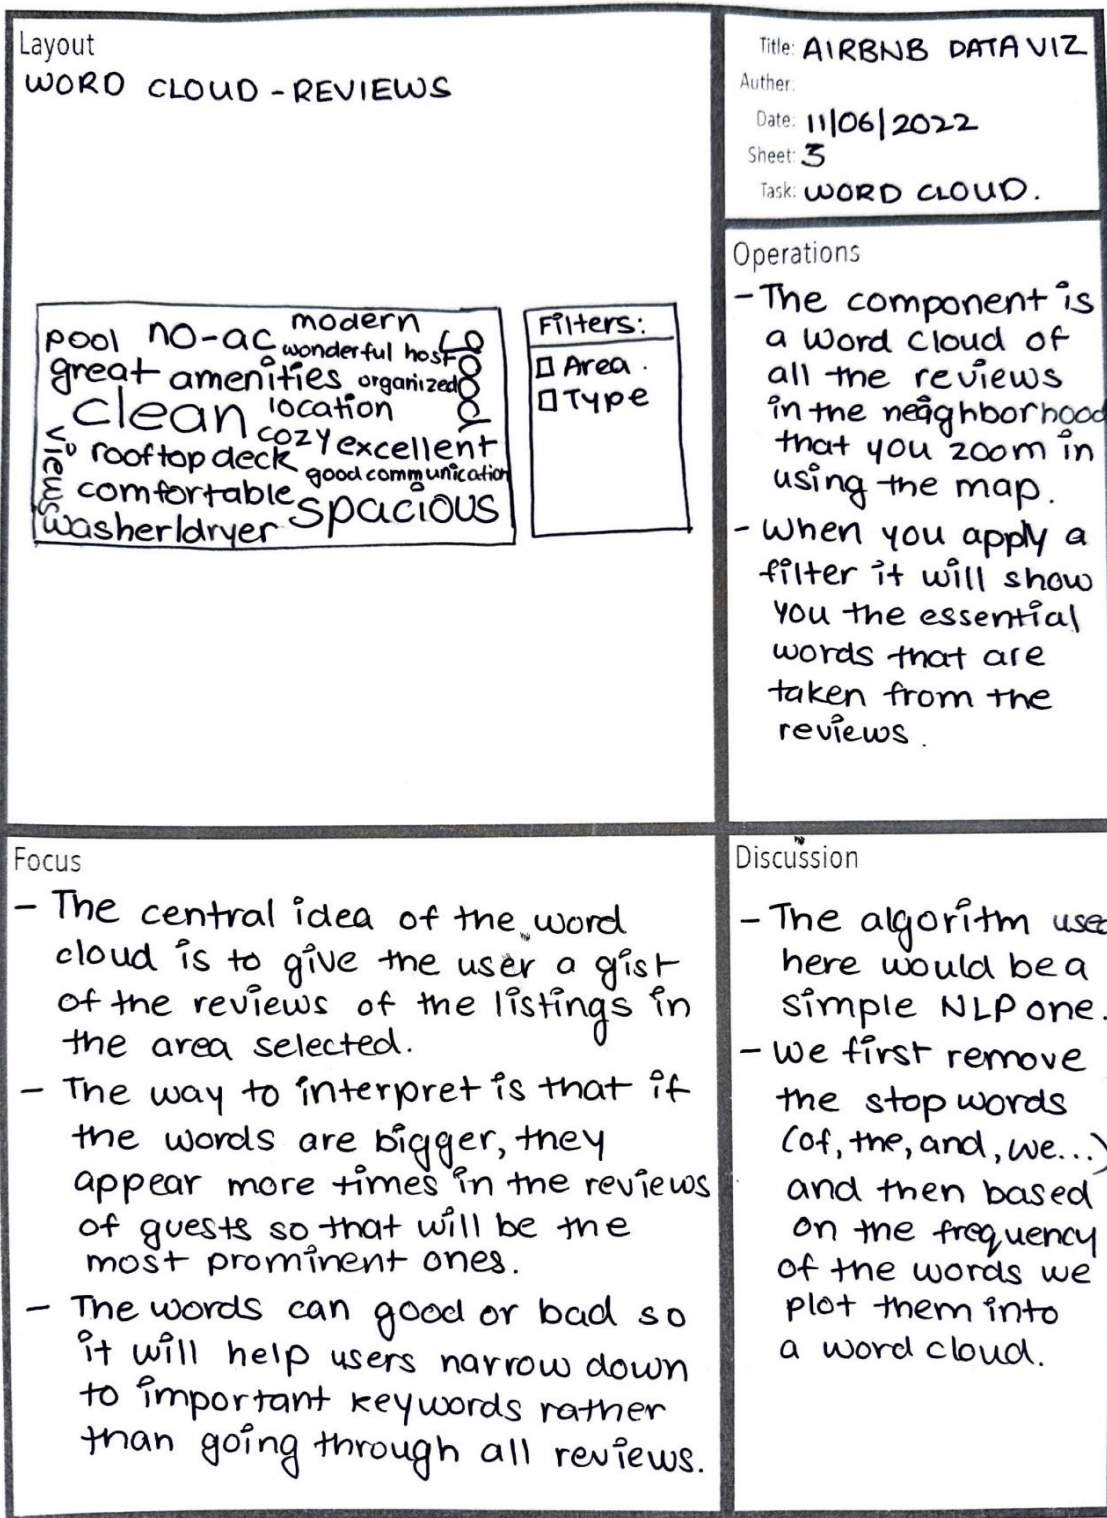 Layout
WORD CLOUD - REVIEWS
pool no-ac modern
wonderful host
great amenities organized
clean location
cozy excellent
rooftop deck
good communication
comfortable
spacious
washer/dryer
views
good
Filters:
Area.
Type
Title: AIRBNB DATA VIZ
Auther:
Date: 11/06/2022
Sheet: 3
Task: WORD CLOUD.
Operations
- The component is
a word cloud of
all the reviews
in the neighborhood
that you zoom in
using the map.
- When you apply a
filter it will show
you the essential
words that are
taken from the
reviews.
Focus
- The central idea of the word
cloud is to give the user a gist
of the reviews of the listings in
the area selected.
- The way to interpret is that if
the words are bigger, they
appear more times in the reviews
of guests so that will be the
most prominent ones.
- The words can good or bad so
it will help users narrow down
to important keywords rather
than going through all reviews.
Discussion
- The algoritm used
here would be a
simple NLP one.
- We first remove
the stop words
(of, the, and, we...)
and then based
on the frequency
of the words we
plot them into
a word cloud.